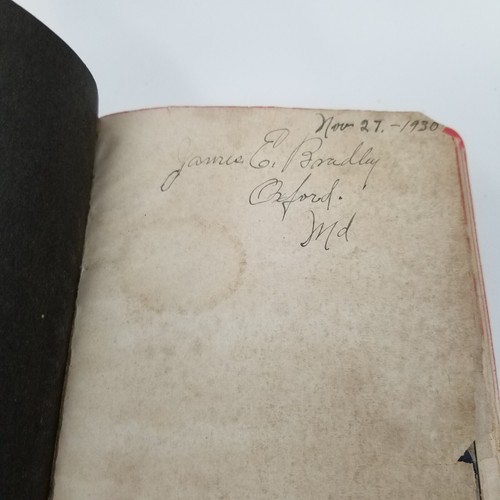 Nov 27. - 1930
James E. Bradley
Oxford.
Md